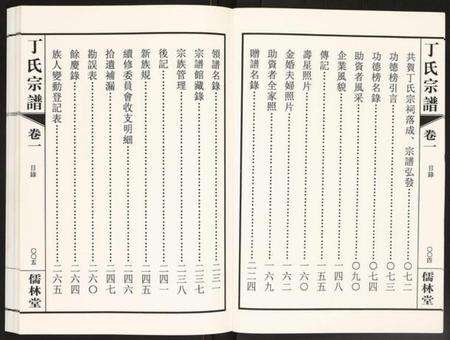 丁氏宗譜
卷一
目錄
〇〇四
儒林堂
共賀丁氏宗祠落成、宗譜弘發……〇七二
功德榜引言……〇七三
功德榜名錄……〇七四
助資者風采……〇九〇
企業風貌……一四八
傳記……一五五
壽星照片……一六〇
金婚夫婦照片……一六二
助資者全家照……一六九
贈譜名錄……二二四
領譜名錄……二三一
宗譜館藏錄……二三七
宗族管理……二三八
後記……二四一
新族規……二四五
續修委員會收支明細……二四六
拾遺補漏……二四七
勘誤表……二六〇
餘慶錄……二六四
族人變動登記表……二六五
丁氏宗譜
卷一
目錄
〇〇五
儒林堂